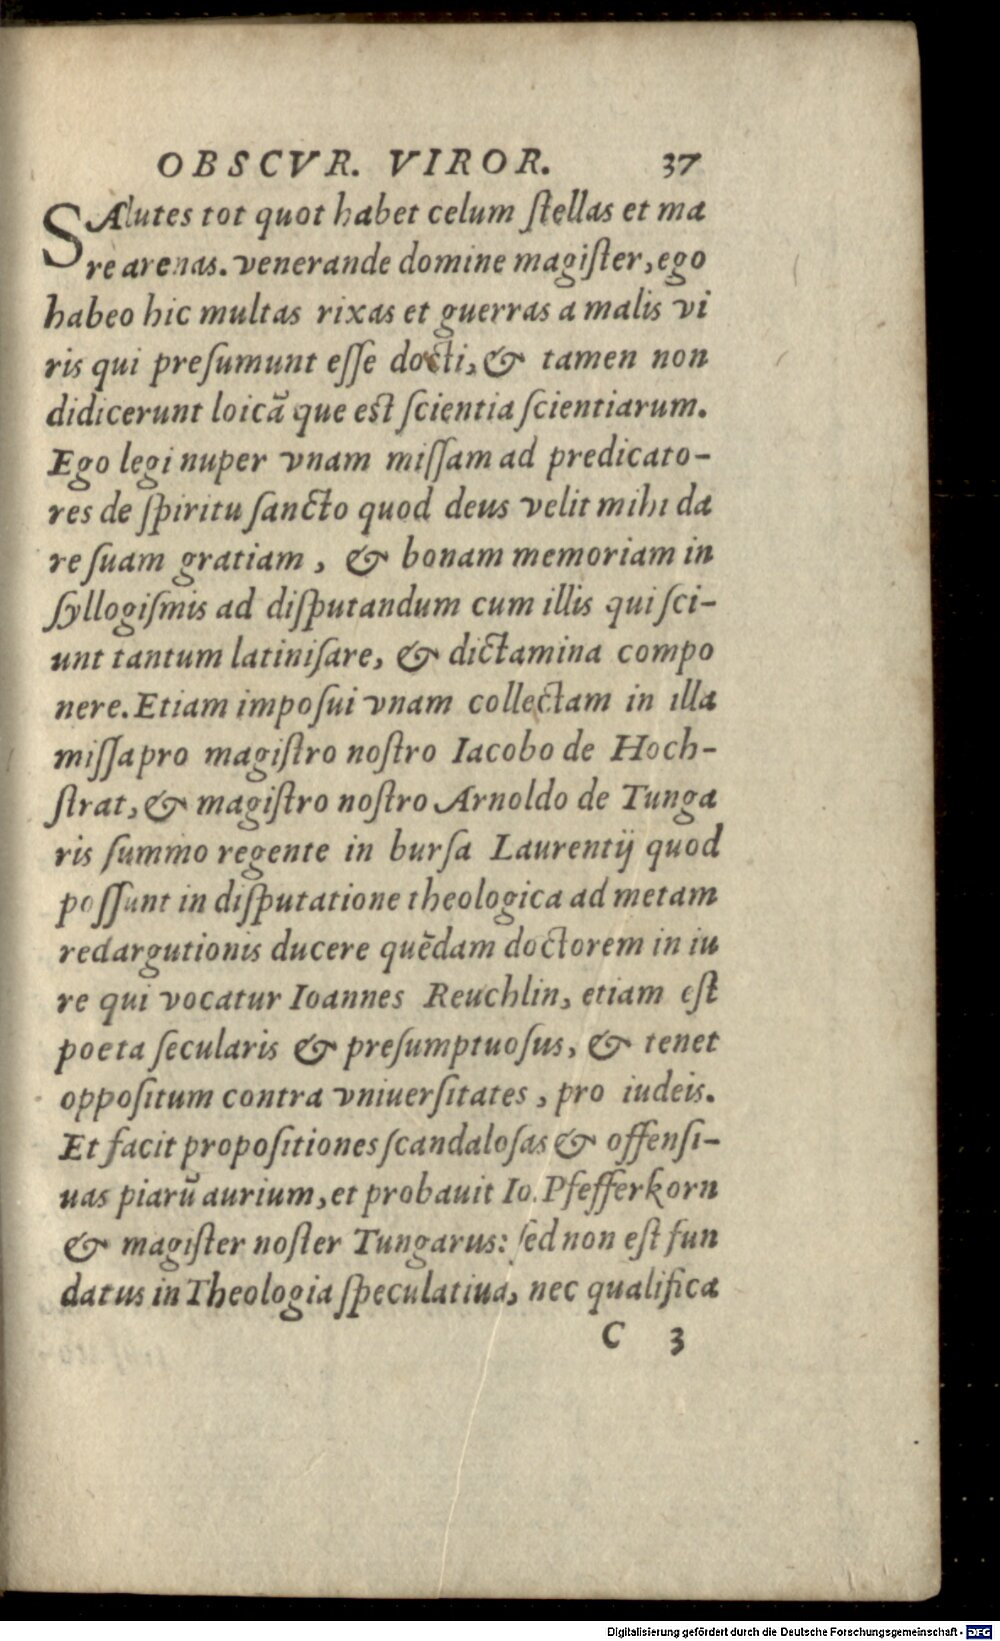 OBSCVR. VIROR. 37
SAlutes tot quot habet celum ſtellas et ma
re arenas. venerande domine magiſter, ego
habeo hic multas rixas et guerras a malis vi
ris qui preſumunt eſſe docti, & tamen non
didicerunt loicã que est ſcientia ſcientiarum.
Ego legi nuper vnam miſſam ad predicato-
res de ſpiritu ſancto quod deus velit mihi da
re ſuam gratiam, & bonam memoriam in
ſyllogiſmis ad diſputandum cum illis qui ſci-
unt tantum latiniſare, & dictamina compo
nere. Etiam impoſui vnam collectam in illa
miſſa pro magiſtro noſtro Iacobo de Hoch-
ſtrat, & magiſtro noſtro Arnoldo de Tunga
ris ſummo regente in burſa Laurentij quod
poſſunt in diſputatione theologica ad metam
redargutionis ducere quẽdam doctorem in iu
re qui vocatur Ioannes Reuchlin, etiam eſt
poeta ſecularis & preſumptuoſus, & tenet
oppoſitum contra vniuerſitates, pro iudeis.
Et facit propoſitiones ſcandaloſas & offenſi-
uas piarũ aurium, et probauit Io. Pfefferkorn
& magiſter noſter Tungarus: ſed non eſt fun
datus in Theologia ſpeculatiua, nec qualifica
C 3
Digitalisierung gefördert durch die Deutsche Forschungsgemeinschaft - DFG